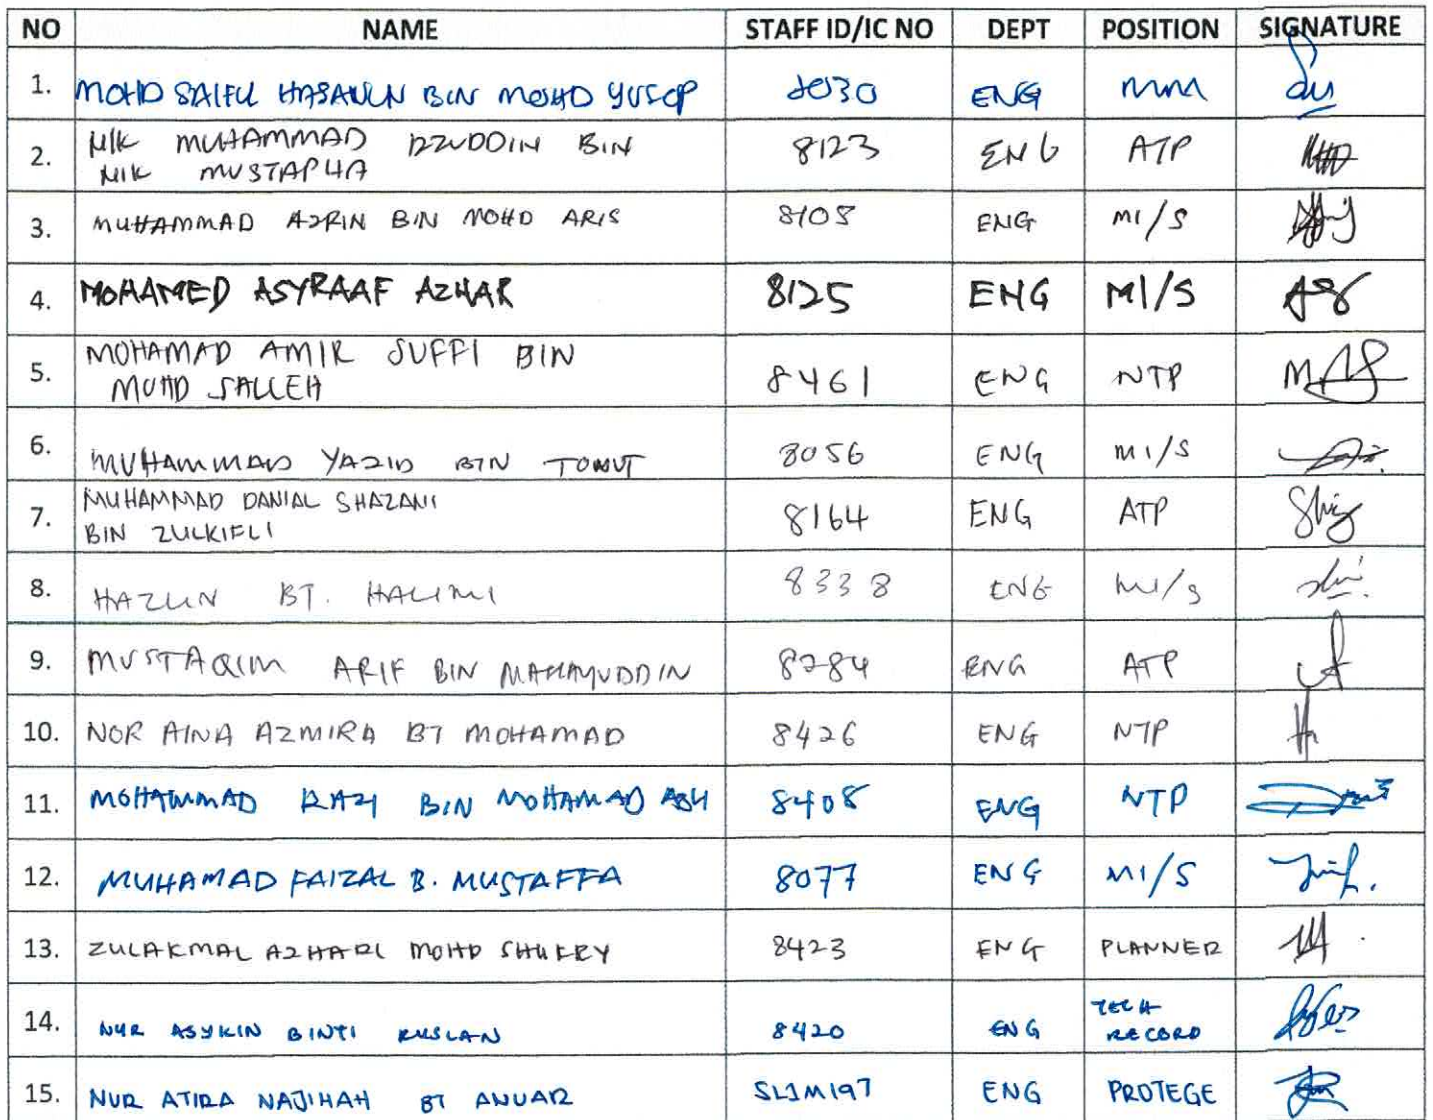 NO NAME STAFF ID/IC NO DEPT POSITION SIGNATURE
1. MOHD SAIFUL HASANUN BIN MOHD YUSOP 8030 ENG MM
2. NIK MUHAMMAD IZZUDDIN BIN 8123 ENG ATP
NIK MUSTAPHA
3. MUHAMMAD AZRIN BIN MOHD ARIS 8108 ENG MI/S
4. MOHAMED ASYRAAF AZHAR 8125 ENG MI/S
5. MOHAMAD AMIR SUFFI BIN 8461 ENG NTP
MOHD SALLEH
6. MUHAMMAD YAZID BIN 8056 ENG MI/S
7. MUHAMMAD DANIAL SHAZANI 8164 ENG ATP
BIN ZULKIFLI
8. HAZLIN BT. HALIMI 8338 ENG MI/S
9. MUSTAQIM ARIF BIN MAHAYUDDIN 8284 ENG ATP
10. NOR AINA AZMIRA BT MOHAMAD 8426 ENG NTP
11. MOHAMMAD RAZI BIN MOHAMAD 8408 ENG NTP
12. MUHAMAD FAIZAL B. MUSTAFFA 8077 ENG MI/S
13. ZULAKMAL AZHARI MOHD SHUKRY 8423 ENG PLANNER
14. NUR ASYKIN BINTI RUSLAN 8420 ENG TECH
RECORD
15. NUR ATIRA NAJIHAH BT ANUAR SL1M197 ENG PROTEGE